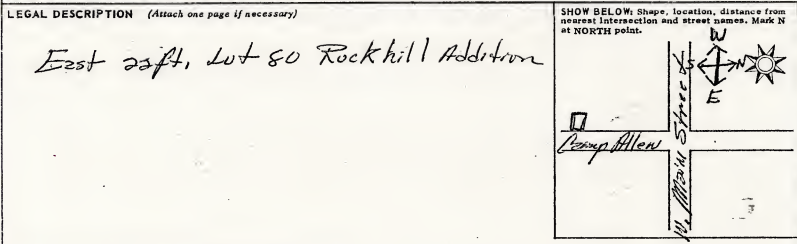 LEGAL DESCRIPTION (Attach one page if necessary)
East 22ft, Lot 80 Rockhill Addition
SHOW BELOW: Shape, location, distance from
nearest Intersection and street names. Mark N
at NORTH point.
W
S N
E
Camp Allen
W. Main Street